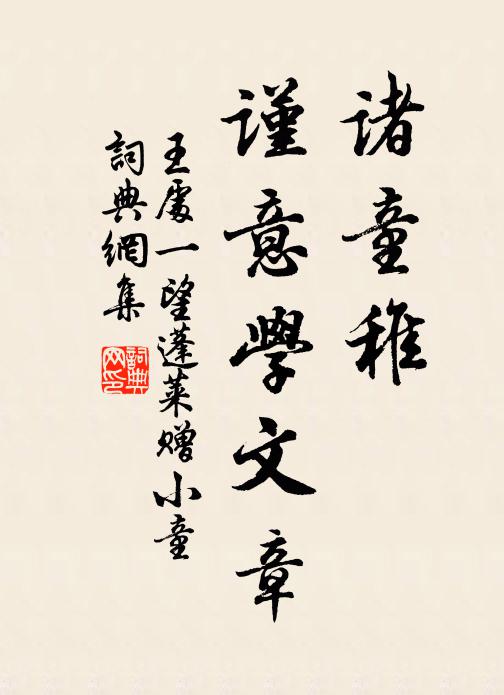 諸童稚
謹意學文章
王處一望蓬萊贈小童
詞典網集
詞典網印